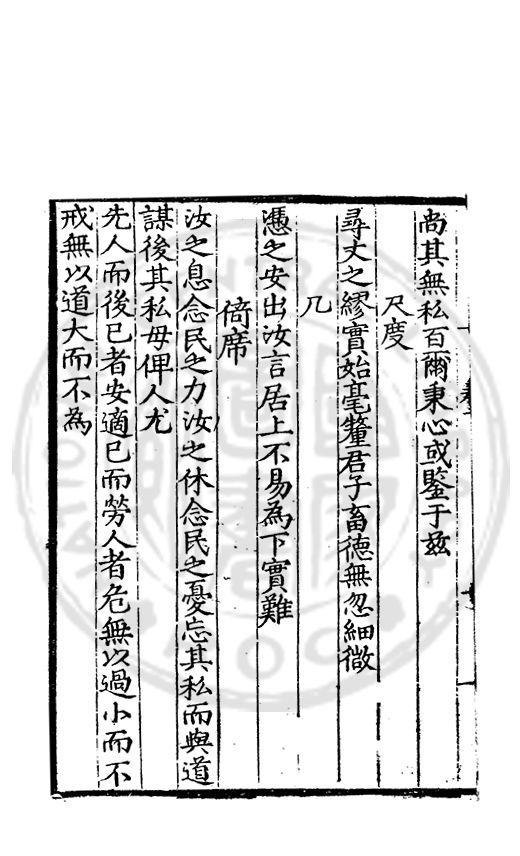 尚其無私百爾秉心或鑒于兹
尺度
尋丈之繆實始毫釐君子畜德無忽細微
几
憑之安出汝言居上不易為下實難
倚席
汝之息念民之力汝之休念民之憂忘其私而與道
謀後其私毋俾人尤
先人而後已者安適已而勞人者危無以過小而不
戒無以道大而不為